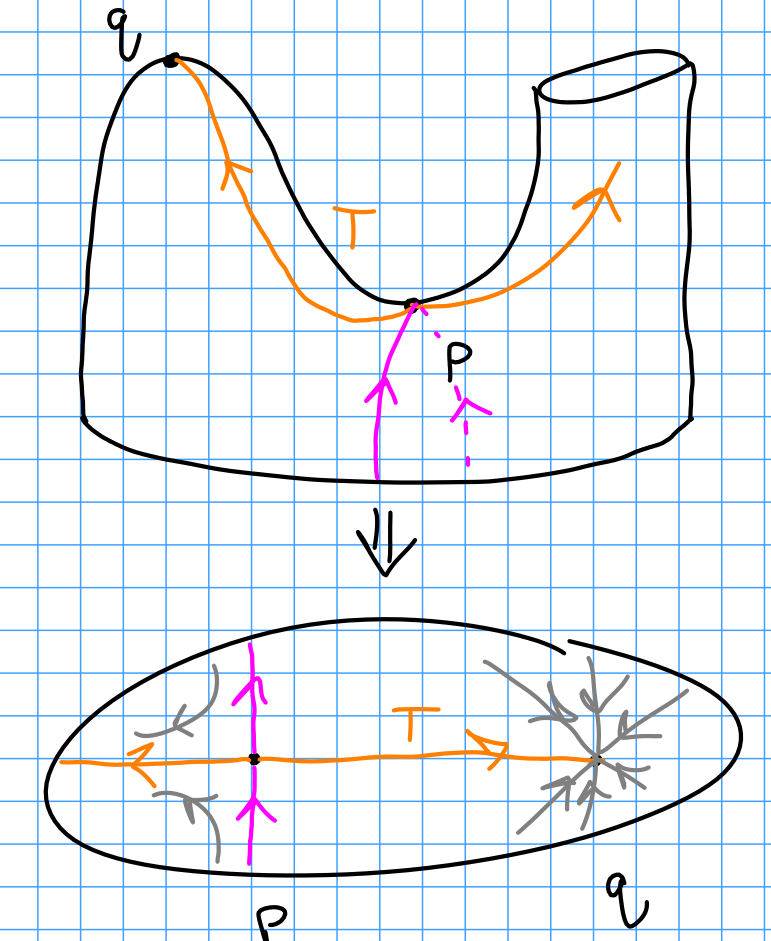 q
T
p
T
p
q